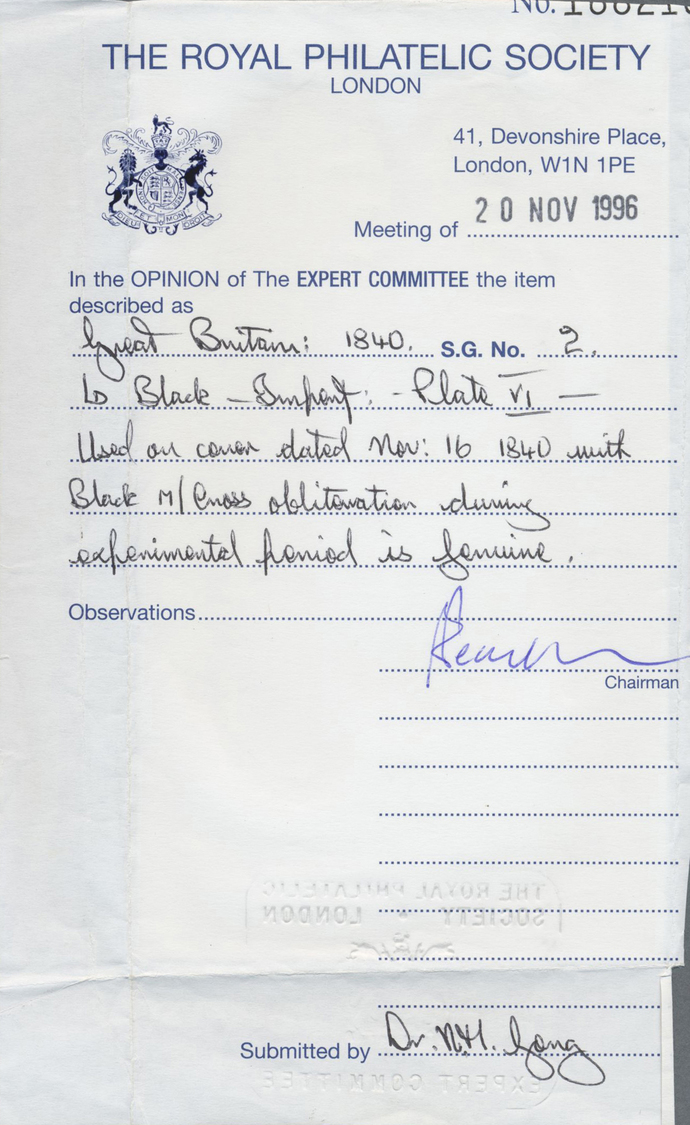 No.
THE ROYAL PHILATELIC SOCIETY
LONDON
41, Devonshire Place,
London, W1N 1PE
20 NOV 1996
Meeting of
In the OPINION of The EXPERT COMMITTEE the item
described as
Great Britain: 1840. S.G. No. 2.
1D Black - Imperf: - Plate VI -
Used on cover dated Nov: 16 1840 with
Black M/Cross obliteration during
experimental period is genuine.
Observations
Chairman
THE ROYAL PHILATELIC
SOCIETY LONDON
Submitted by Dr. N.H.
EXPERT COMMITTEE